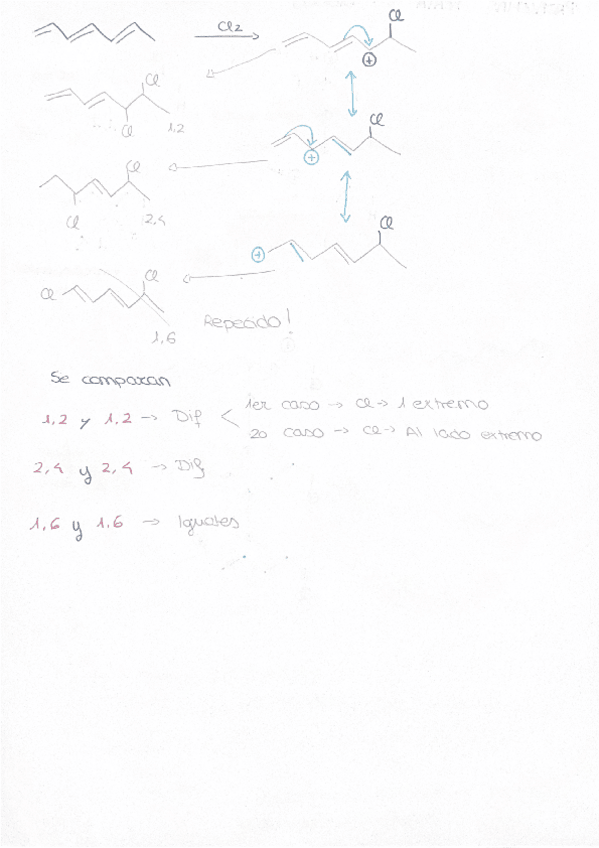 Cl2
Cl
⊕
Cl
Cl
1,2
Cl
⊕
Cl
Cl
2,4
Cl
⊕
Cl
Cl
1,6
Repetido!
Se comparan
1,2 y 1,2 → Dif < 1er caso → Cl → 1 extremo
2o caso → Cl → Al lado extremo
2,4 y 2,4 → Dif
1,6 y 1,6 → Iguales